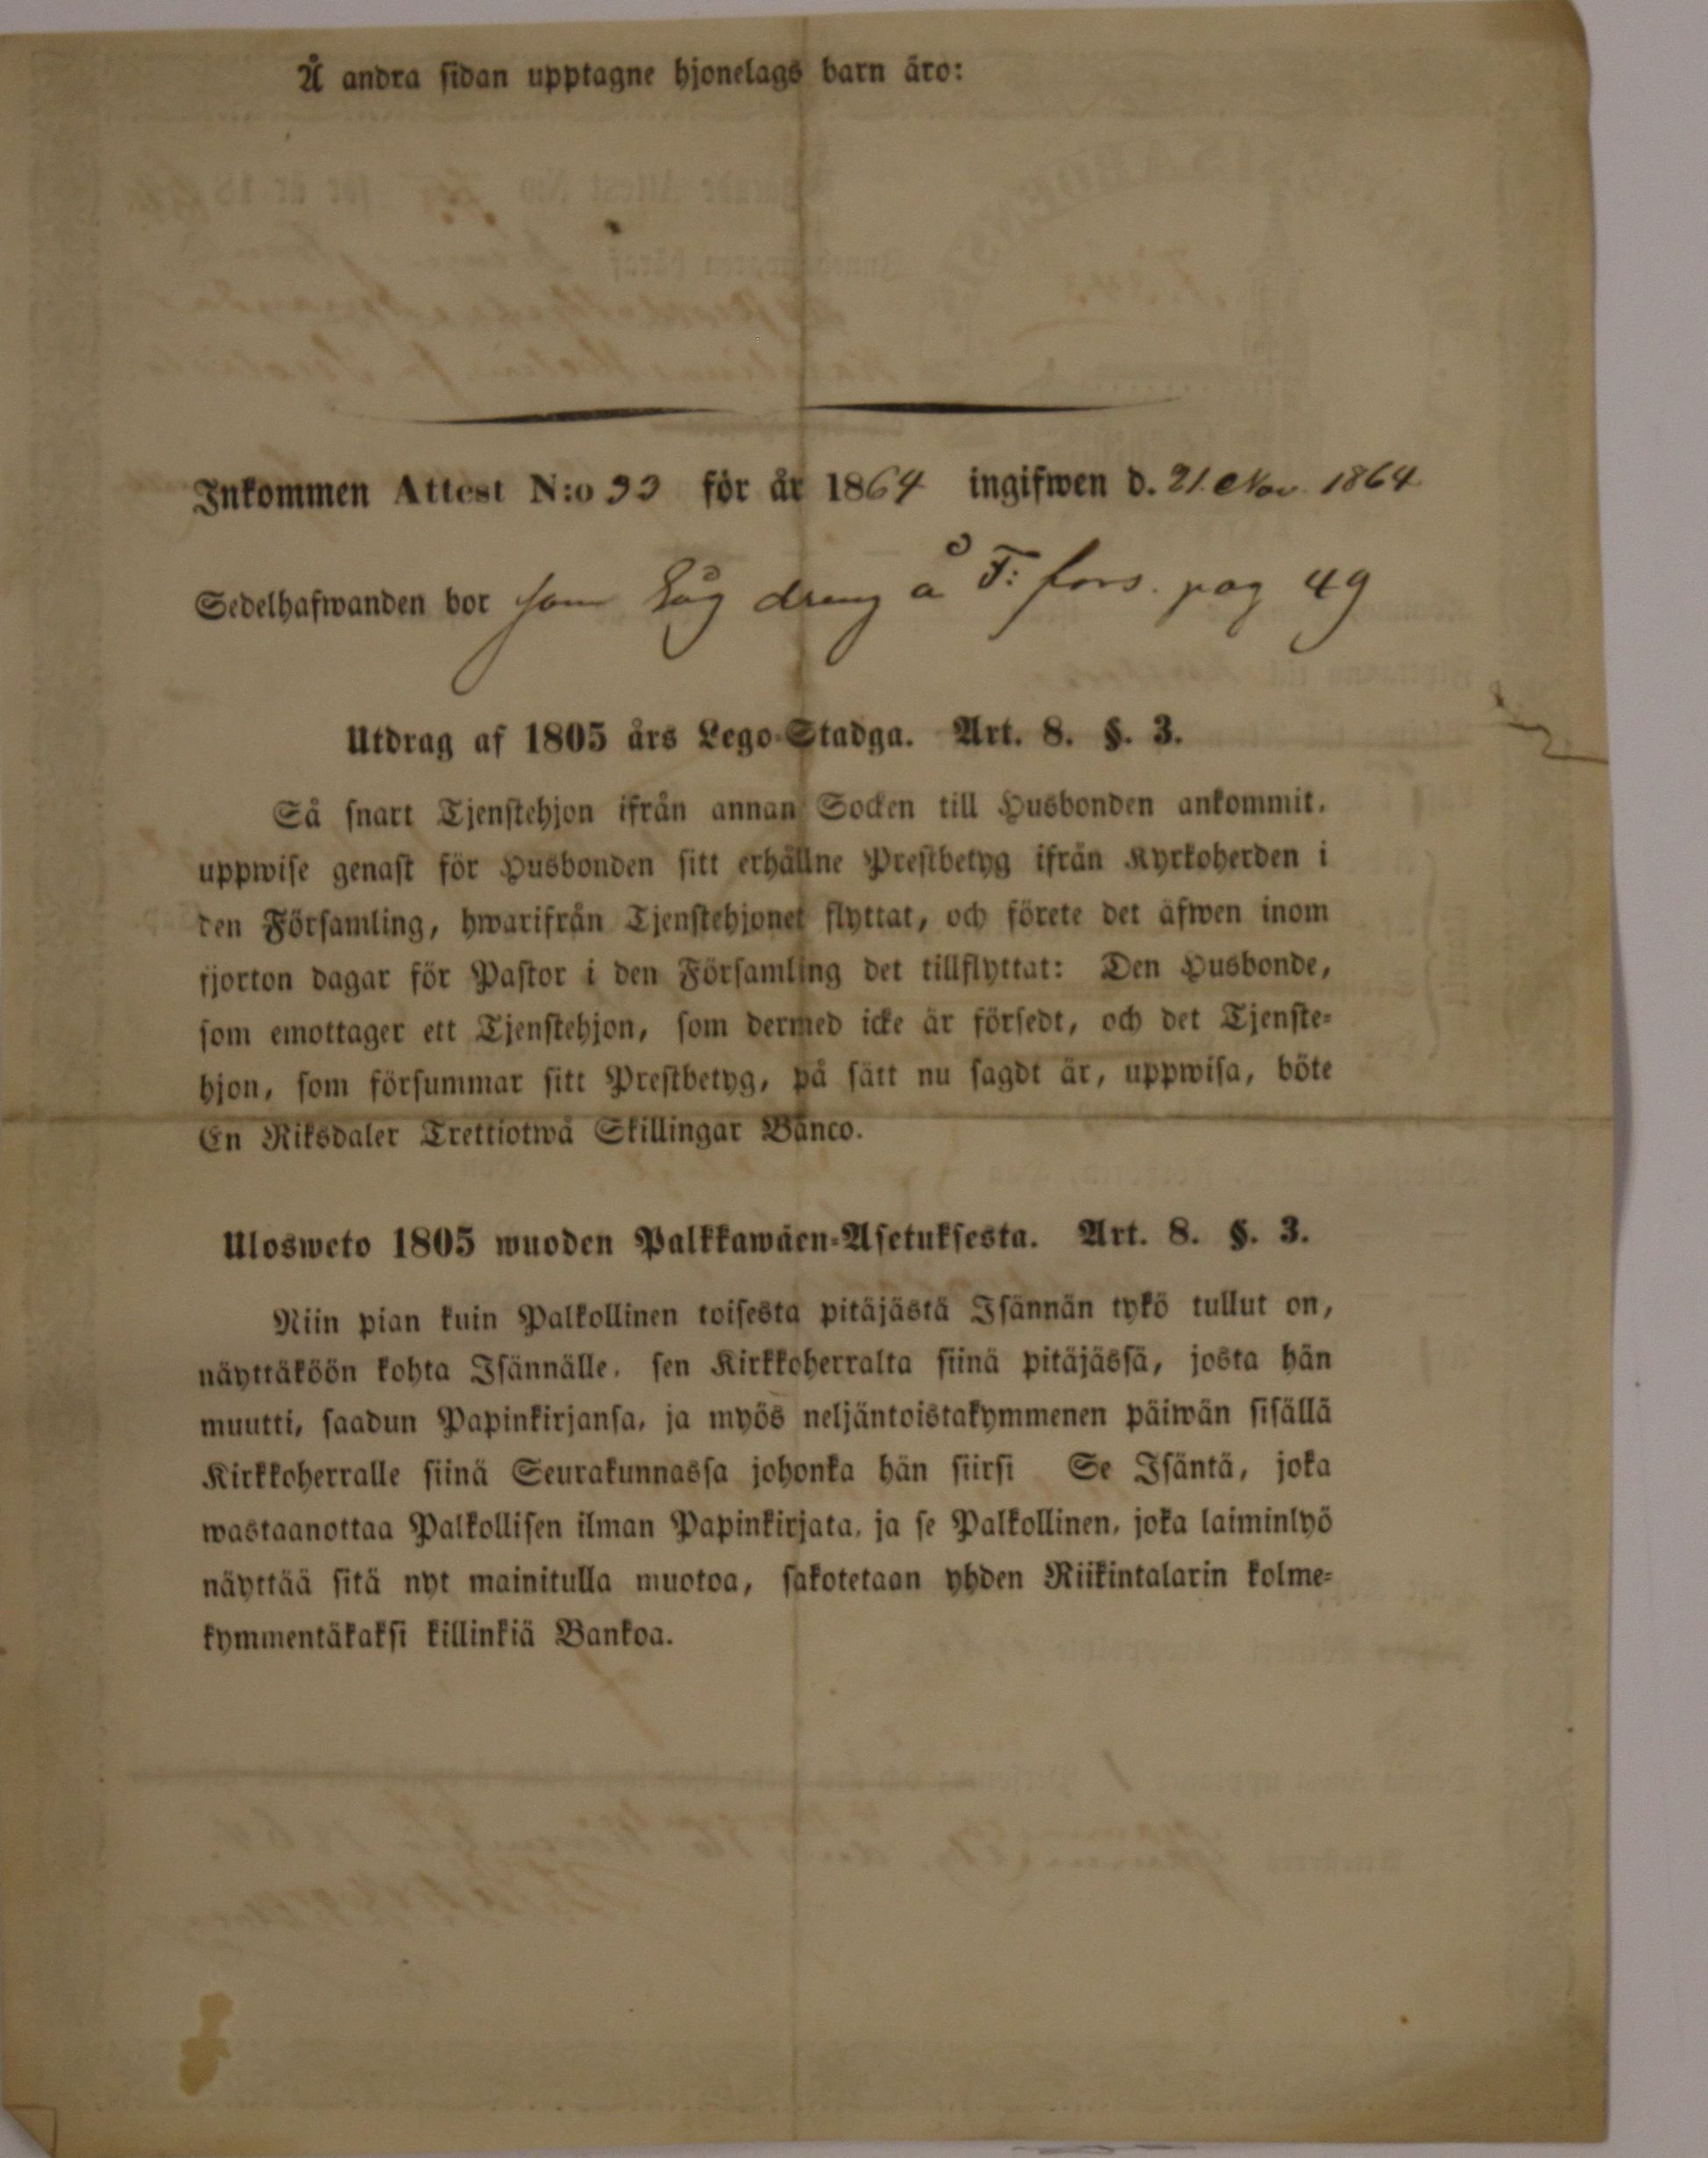 Å andra sidan upptagne hjonelags barn äro:
Inkommen Attest N:o 93 för år 1864 ingifwen d. 21 Nov. 1864
Sedelhafwanden bor som Såg dreng å F: fors. pag 49
Utdrag af 1805 års Lego-Stadga. Art. 8. §. 3.
Så snart Tjenstehjon ifrån annan Socken till Husbonden ankommit,
uppwise genast för Husbonden sitt erhållne Prestbetyg ifrån Kyrkoherden i
den Församling, hwarifrån Tjenstehjonet flyttat, och förete det äfwen inom
fjorton dagar för Pastor i den Församling det tillflyttat: Den Husbonde,
som emottager ett Tjenstehjon, som dermed icke är försedt, och det Tjenste-
hjon, som försummar sitt Prestbetyg, på sätt nu sagdt är, uppwisa, böte
En Riksdaler Trettiotwå Skillingar Banco.
Ulosweto 1805 wuoden Palkkawäen-Asetuksesta. Art. 8. §. 3.
Niin pian kuin Palkollinen toisesta pitäjästä Isännän tykö tullut on,
näyttäköön kohta Isännälle, sen Kirkkoherralta siinä pitäjässä, josta hän
muutti, saadun Papinkirjansa, ja myös neljäntoistakymmenen päiwän sisällä
Kirkkoherralle siinä Seurakunnassa johonka hän siirsi Se Isäntä, joka
wastaanottaa Palkollisen ilman Papinkirjata, ja se Palkollinen, joka laiminlyö
näyttää sitä nyt mainitulla muotoa, sakotetaan yhden Riikintalarin kolme-
kymmentäkaksi killinkiä Bankoa.